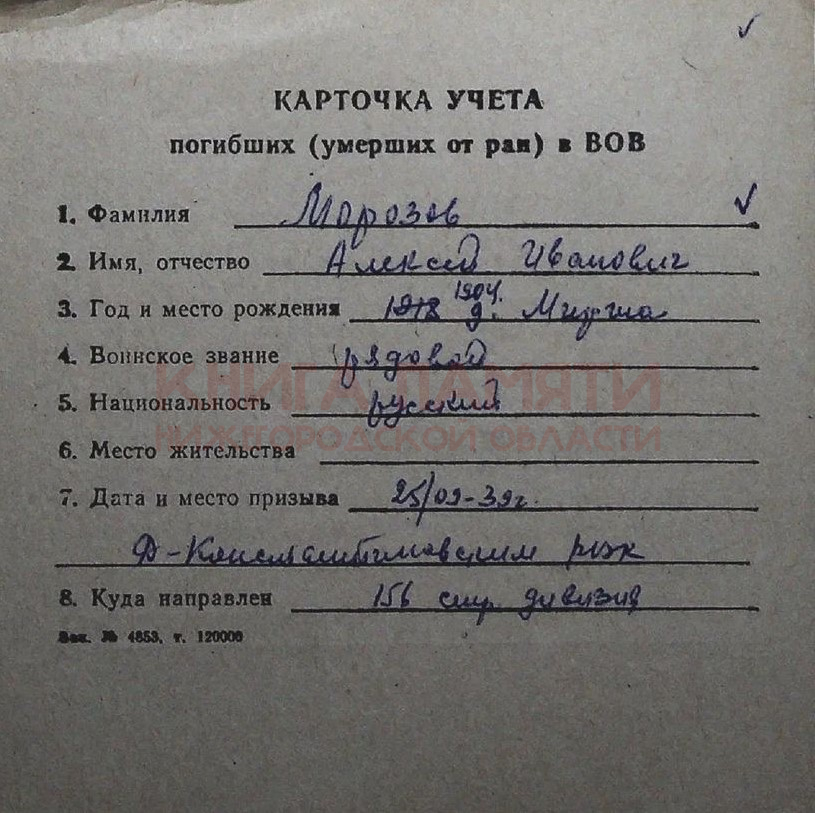 КАРТОЧКА УЧЕТА
погибших (умерших от ран) в ВОВ
1. Фамилия Морозов
2. Имя, отчество Алексей Иванович
3. Год и место рождения 1918 1904. д.
4. Воинское звание рядовой
5. Национальность русский
КНИГА ПАМЯТИ
НИЖЕГОРОДСКОЙ ОБЛАСТИ
6. Место жительства
7. Дата и место призыва 25/09-39г.
Д-Константиновским рвк
8. Куда направлен 156 стр. дивизия
Зак. № 4853, т. 120000